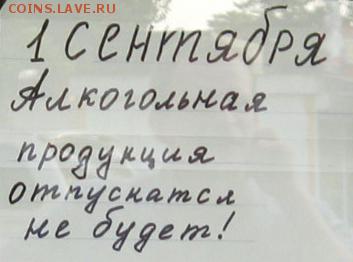 COINS.LAVE.RU
1 Сентября
Алкогольная
продукция
отпуснатся
не будет!